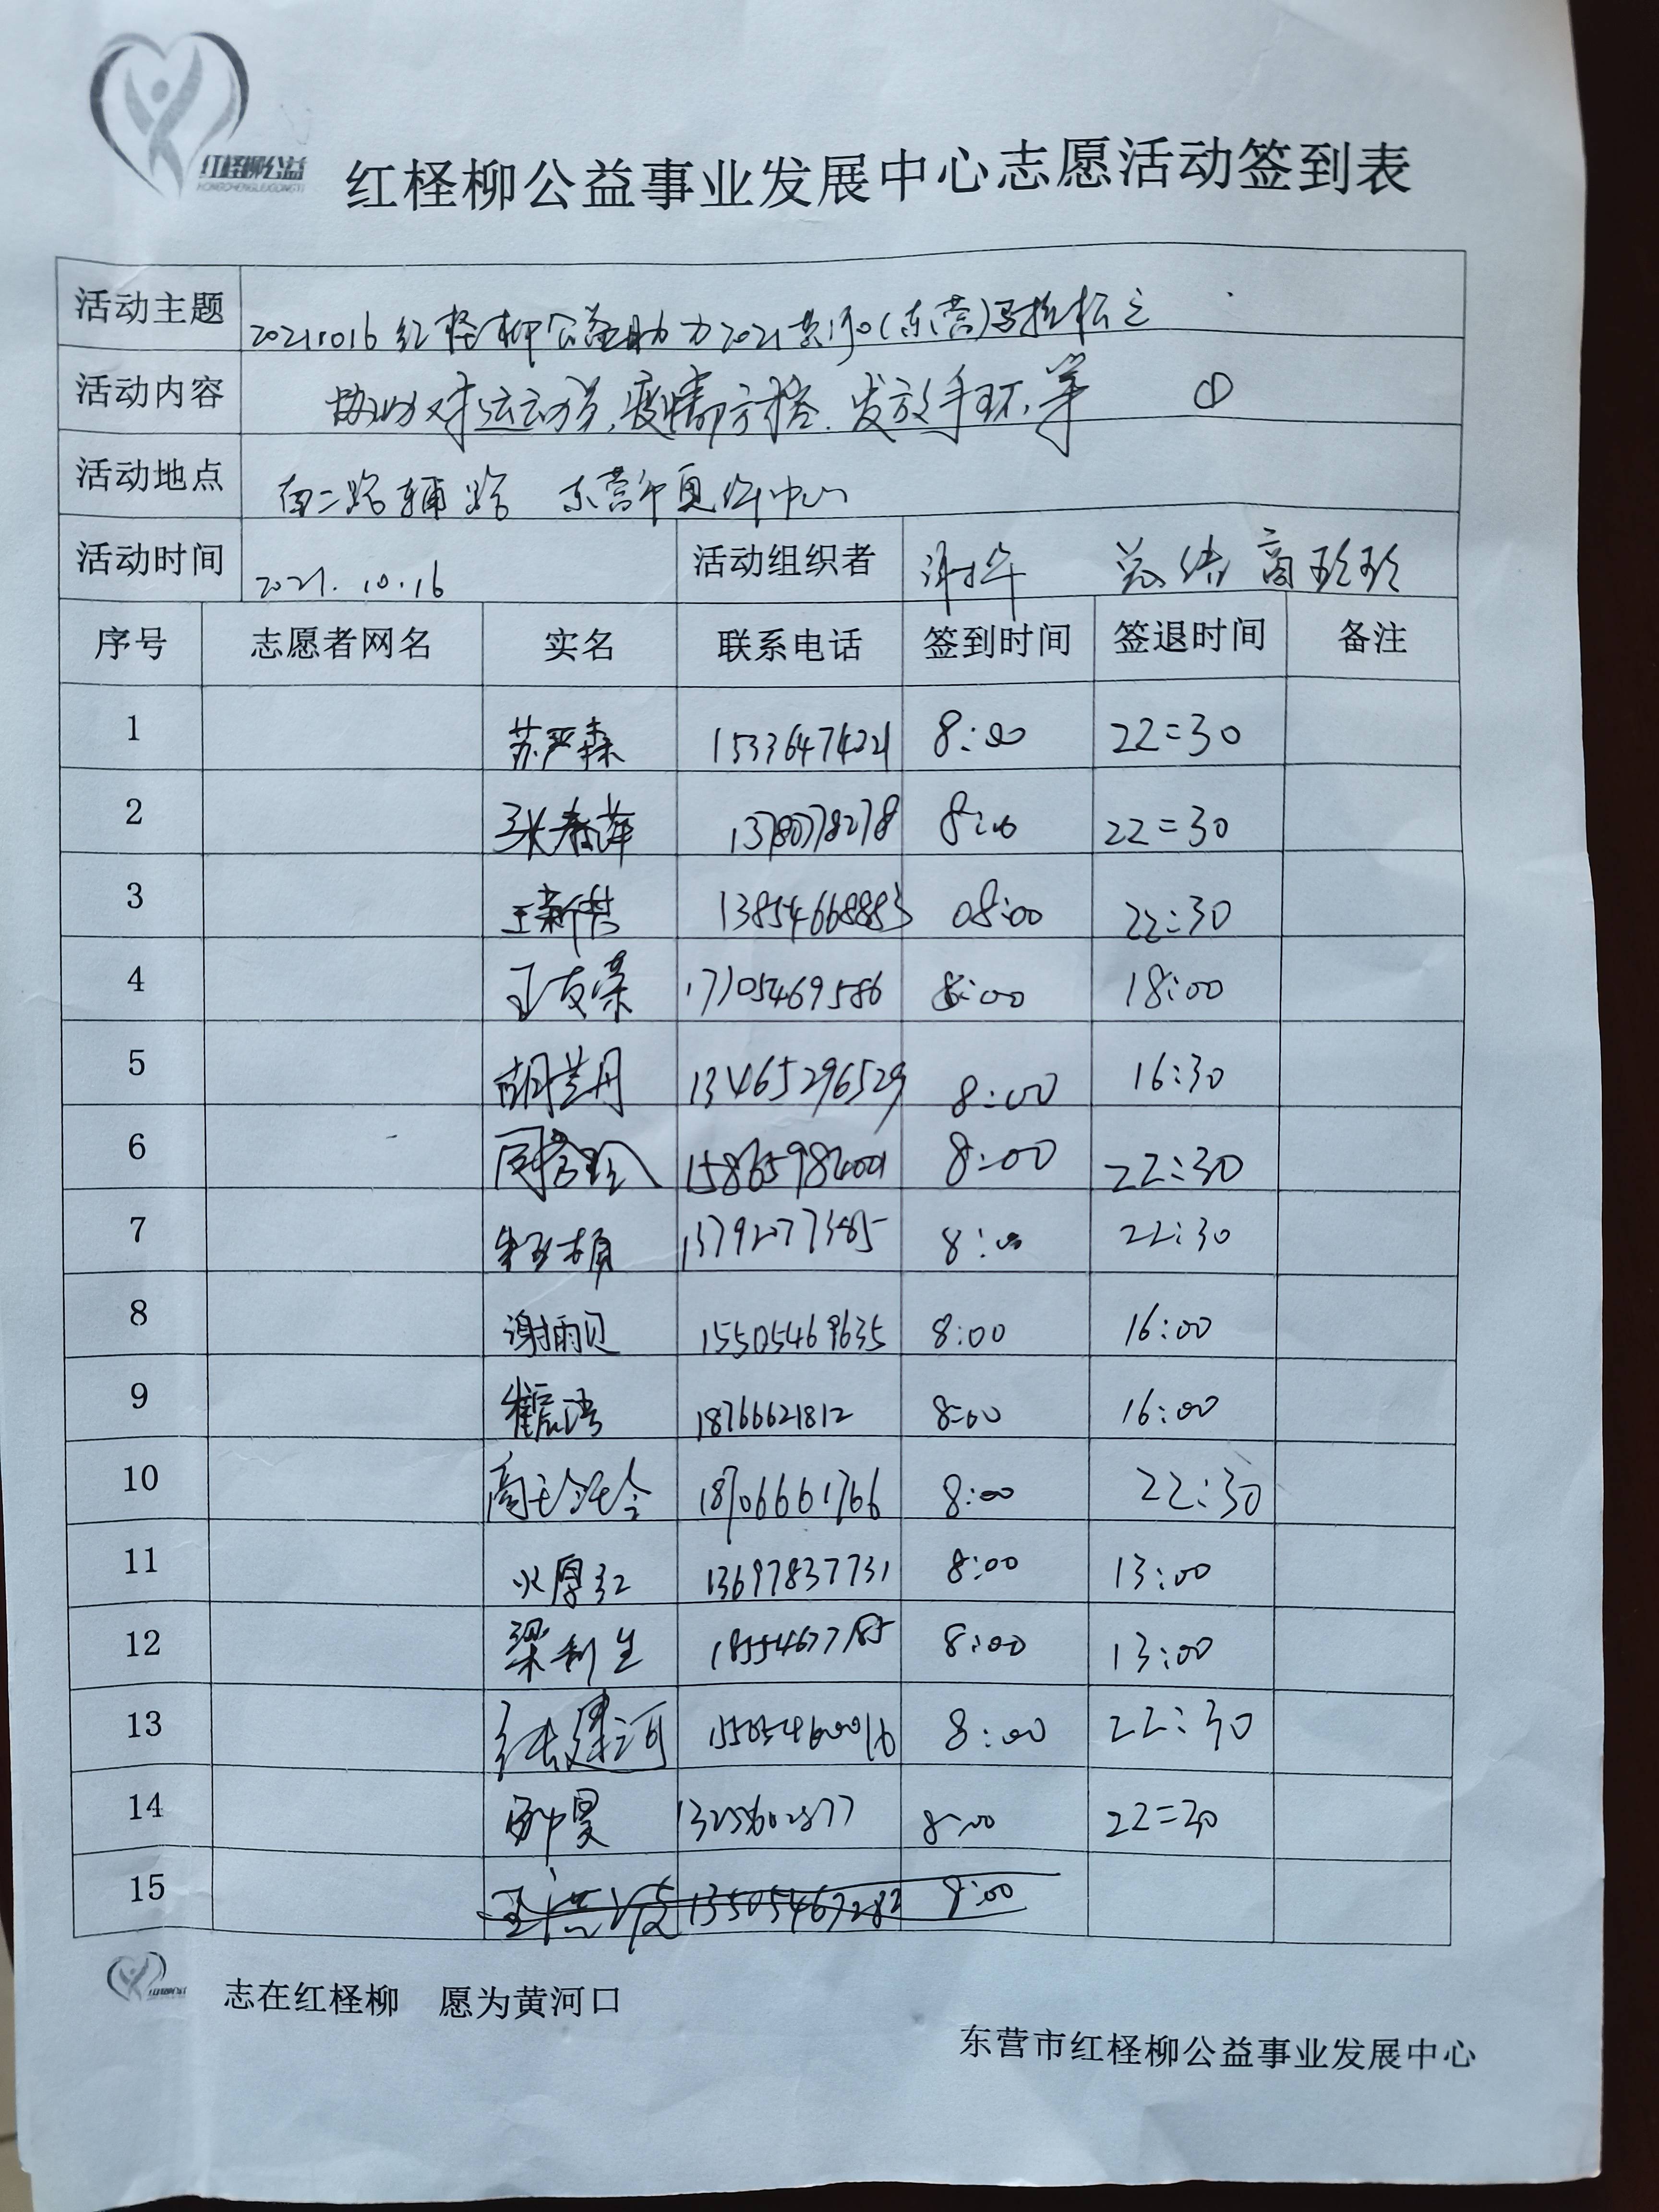 红柽柳公益
HONGCHENGLIUGONGYI
红柽柳公益事业发展中心志愿活动签到表
活动主题 20211016红柽柳公益助力2021黄河(东营)马拉松之
活动内容 协助对运动员,疫情防 发放手环,等 ①
活动地点 南二路辅路 东营市 中心
活动时间 2021.10.16 活动组织者 谢华 总结 商玲玲
序号 志愿者网名 实名 联系电话 签到时间 签退时间 备注
1 苏严森 15336474221 8:00 22:30
2 张春萍 13780778278 8:00 22:30
3 王新 13854668883 08:00 22:30
4 王友荣 17705469586 8:00 18:00
5 胡兰丹 13465296529 8:00 16:30
6 周 8:00 22:30
7 8:00 22:30
8 谢雨贝 15505469635 8:00 16:00
9 崔宸 18766621812 8:00 16:00
10 商玲玲 18706661766 8:00 22:30
11 厚红 13697837731 8:00 13:00
12 梁利生 18554677185 8:00 13:00
13 张建河 15505460016 8:00 22:30
14 8:00 22:30
15 王 13505467282 8:00
志在红柽柳 愿为黄河口
东营市红柽柳公益事业发展中心